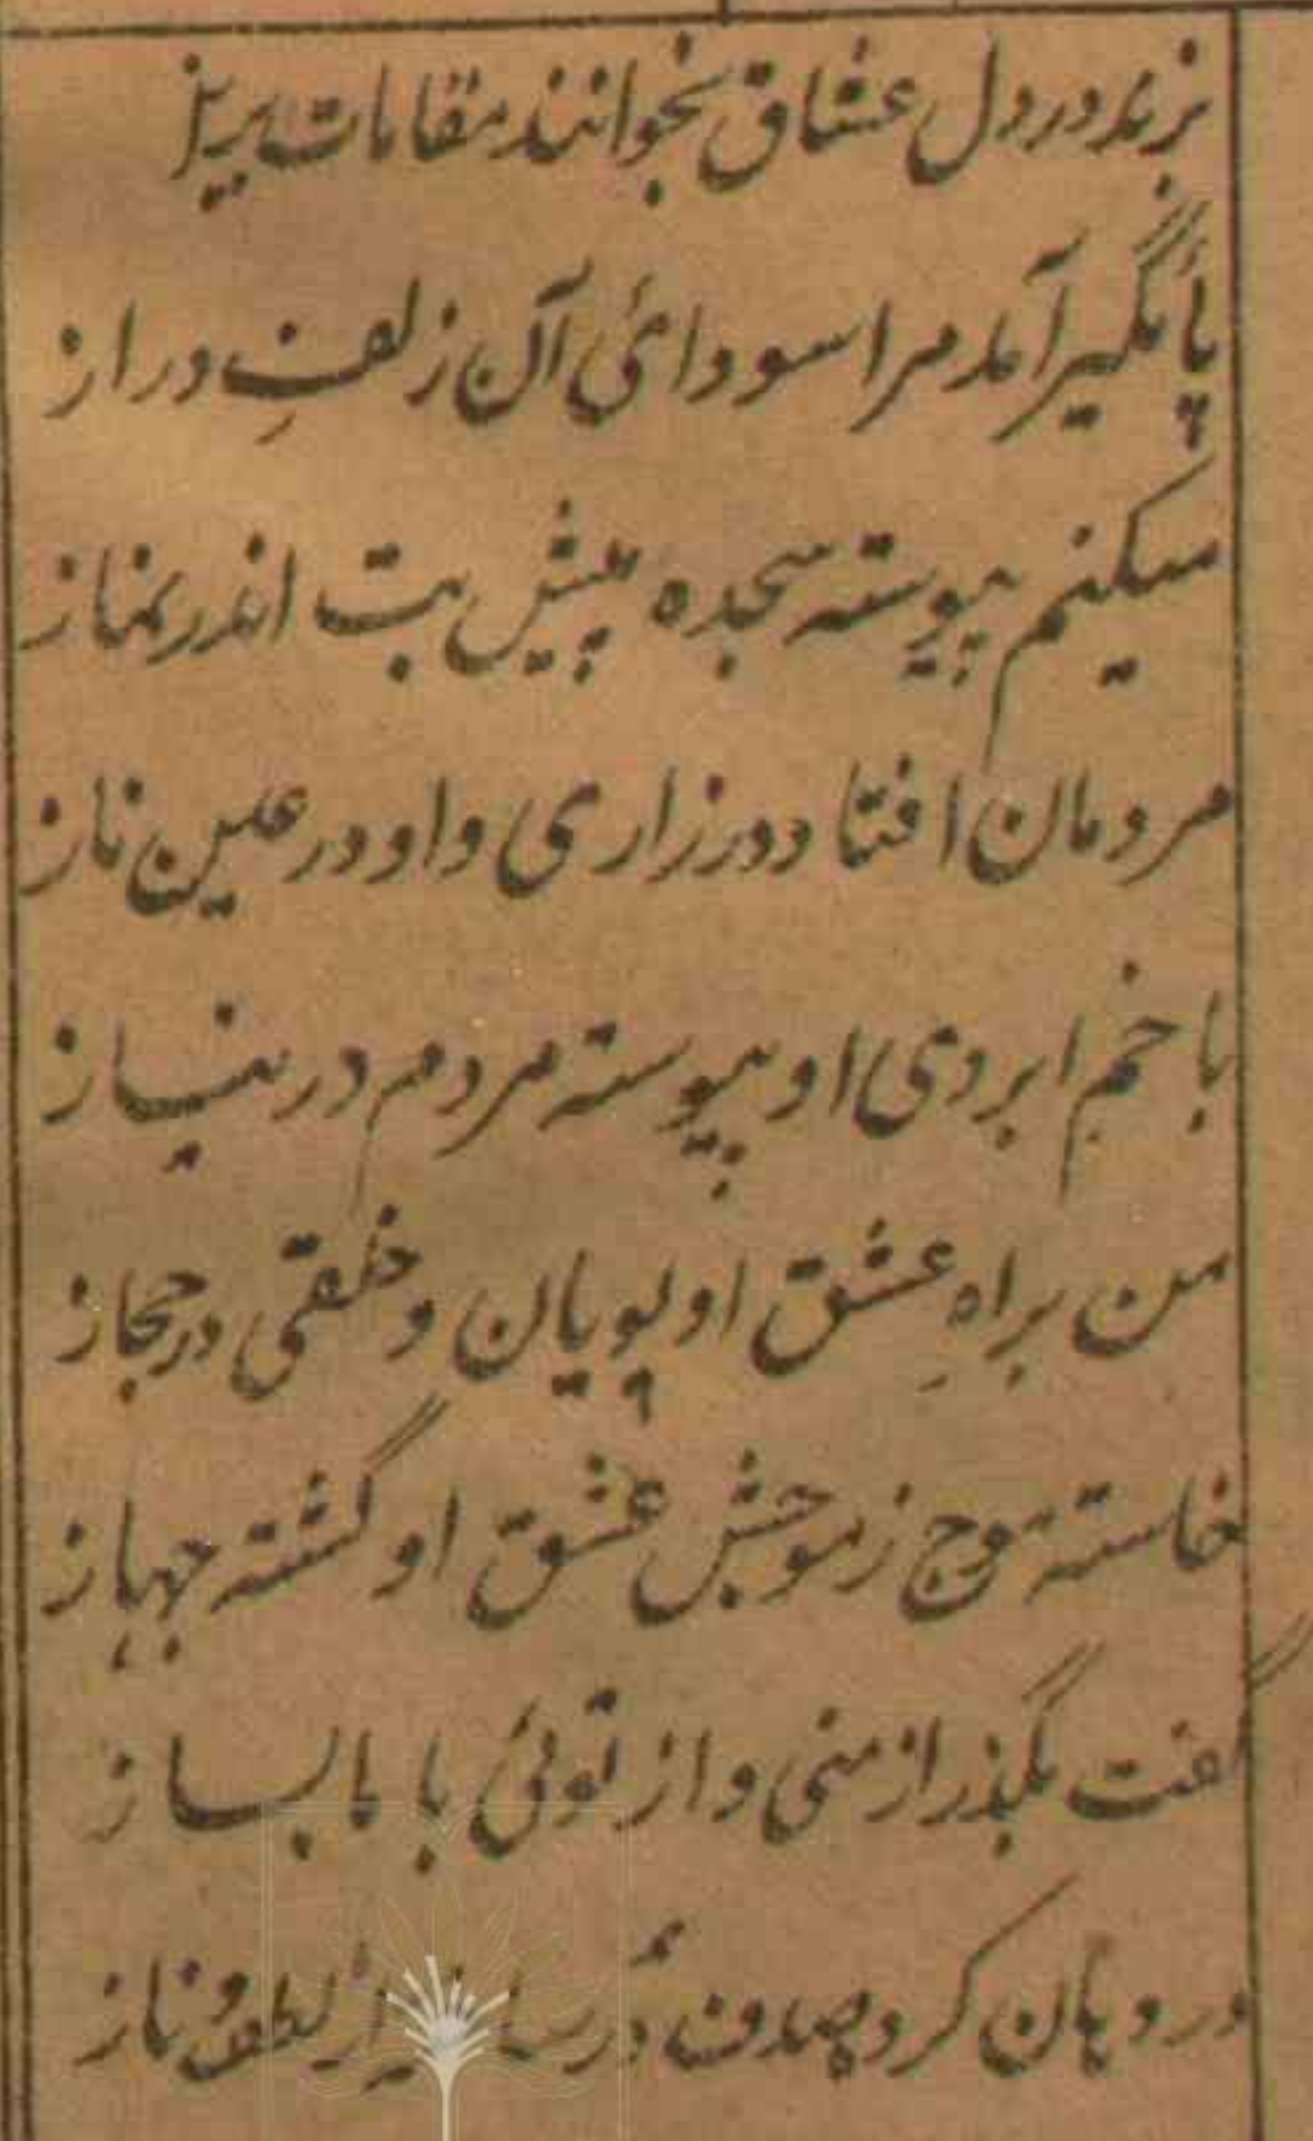 بزند در دل عشاق بخوانند مقامات بریز
پأیگیر آمد مرا سودائی آن زلفِ دراز
میکنم پیوسته سجده پیش بت اندر نماز
مردمان افتاد در زاری و او در عین ناز
با خم ابروی او پیوسته مردم در نیاز
من براهِ عشق او پویان و خلقی در حجاز
خاسته موج ز موجش عشق او گشته جهاز
گفت بگذر از منی و از توئی با ما بساز
در دهان کرد صدف در لطف باز